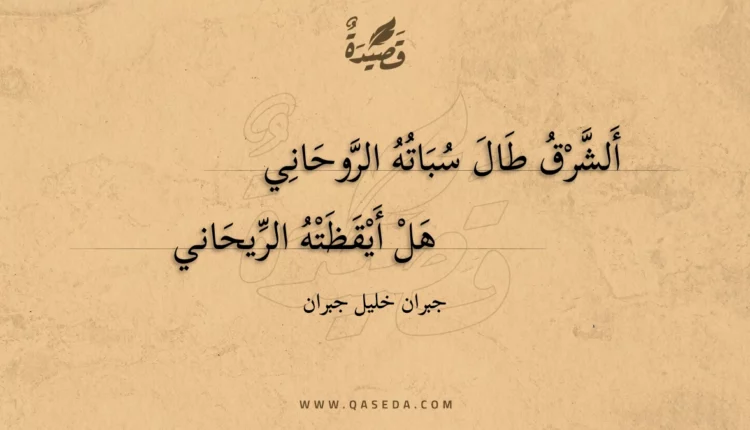 قَصِيْدَةٌ
أَلشَّرْقُ طَالَ سُبَاتُهُ الرَّوحَانِي
هَلْ أَيْقَظَتْهُ الرِّيحَاني
جبران خليل جبران
WWW.QASEDA.COM